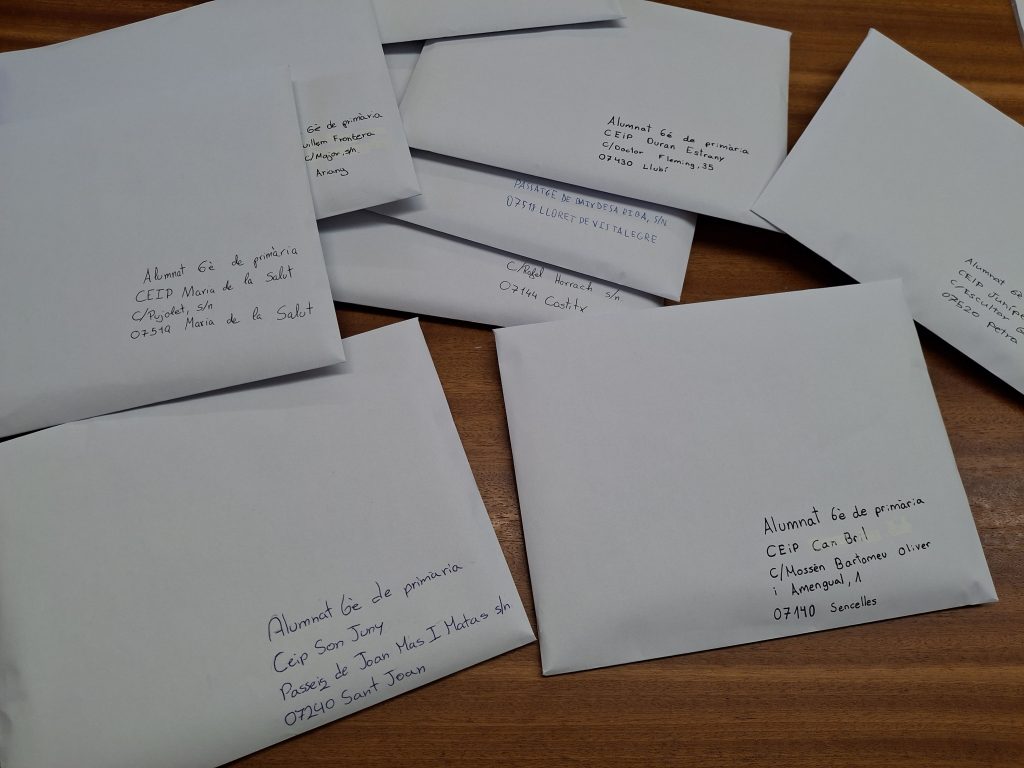 6è de primària
Guillem Frontera
C/Major, s/n.
Ariany
Alumnat 6è de primària
CEIP Duran Estrany
C/Doctor Fleming, 35
07430 Llubí
PASSATGE DE BAIX DE SA RIBA, S/N
07518 LLORET DE VISTALEGRE
C/Rafel Horrach s/n
07144 Costitx
Alumnat 6è
CEIP Juníper
C/Escultor
07520 Petra
Alumnat 6è de primària
CEIP Maria de la Salut
C/Pujolet, s/n
07519 Maria de la Salut
Alumnat 6è de primaria
Ceip Son Juny
Passeig de Joan Mas I Matas s/n
07240 Sant Joan
Alumnat 6è de primària
CEIP Can Bril
C/Mossèn Bartomeu Oliver
i Amengual, 1
07140 Sencelles